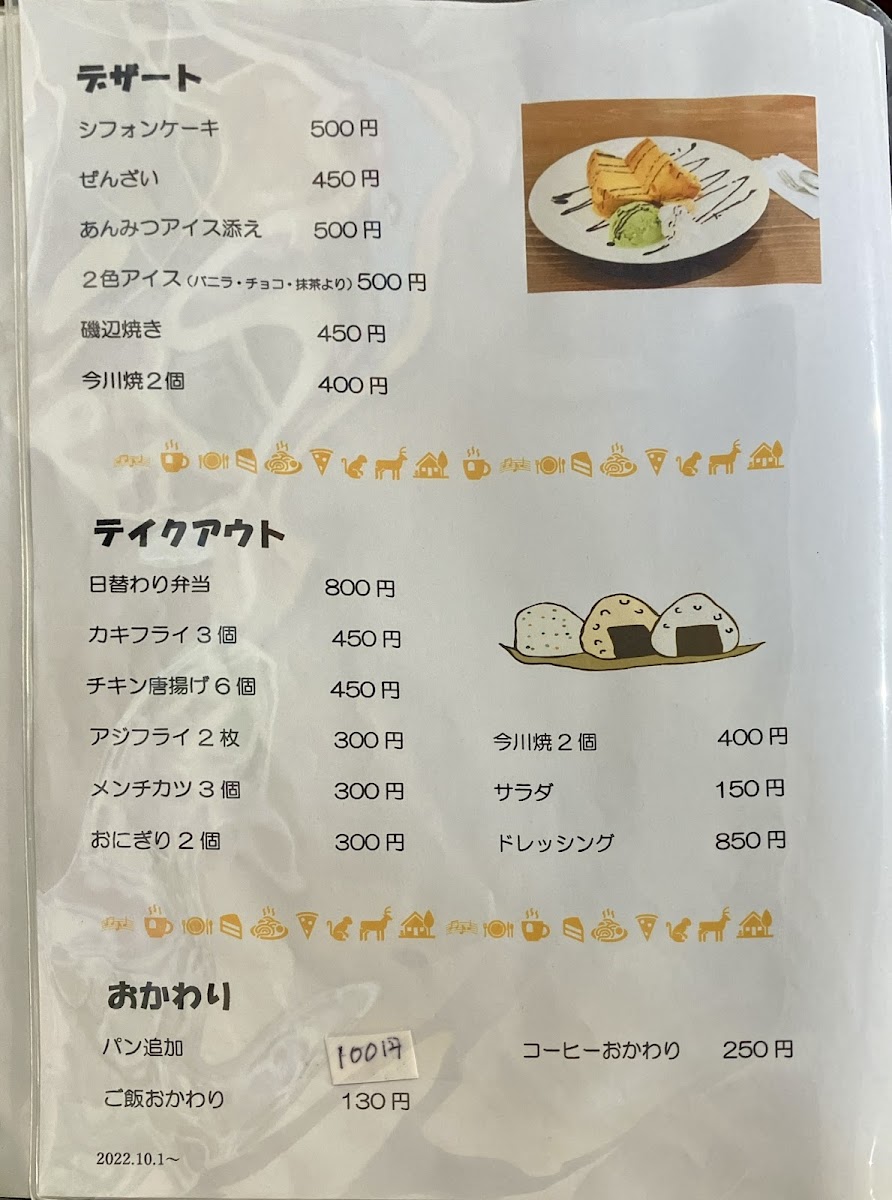 デザート
シフォンケーキ 500円
ぜんざい 450円
あんみつアイス添え 500円
2色アイス（バニラ・チョコ・抹茶より）500円
磯辺焼き 450円
今川焼2個 400円
テイクアウト
日替わり弁当 800円
カキフライ3個 450円
チキン唐揚げ6個 450円
アジフライ2枚 300円
メンチカツ3個 300円
おにぎり2個 300円
今川焼2個 400円
サラダ 150円
ドレッシング 850円
おかわり
パン追加 100円
ご飯おかわり 130円
コーヒーおかわり 250円
2022.10.1〜